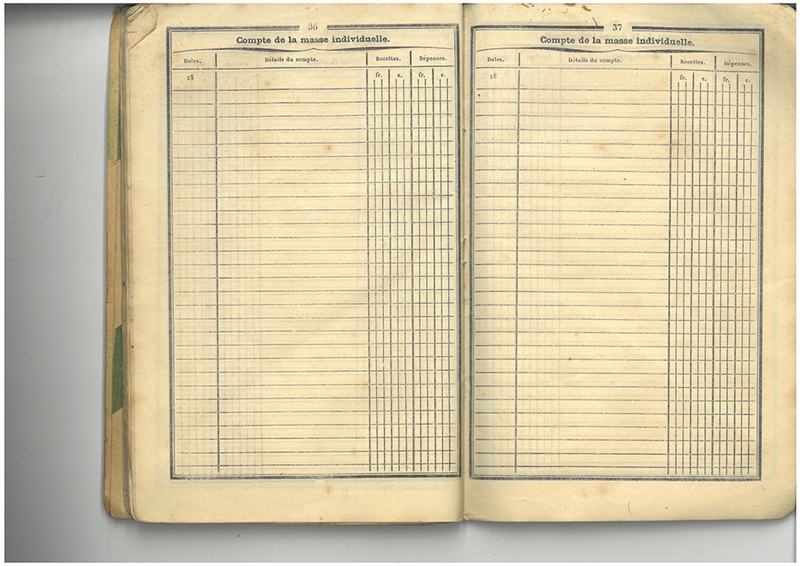 36
Compte de la masse individuelle.
Dates. Détails du compte. Recettes. Dépenses.
18 fr. c. fr. c.
37
Compte de la masse individuelle.
Dates. Détails du compte. Recettes. Dépenses.
18 fr. c. fr. c.